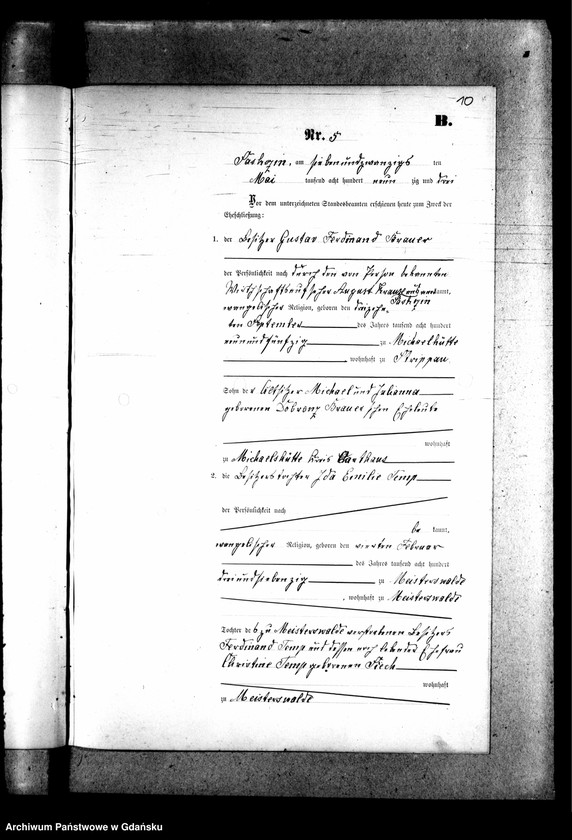 10
B.
Nr. 5
am siebenundzwanzigsten
Mai tausend acht hundert neunzig und drei
Vor dem unterzeichneten Standesbeamten erschienen heute zum Zweck der
Eheschließung:
1. der Besitzer Gustav Ferdinand Brauer
der Persönlichkeit nach durch den von Person bekannten
Wirthschaftsaufseher August
evangelischer Religion, geboren den dreizehn-
ten September des Jahres tausend acht hundert
neunundfünfzig zu Michaelhütte
wohnhaft zu Strippau
Sohn der Altsitzer Michael und Julianna
geborenen Brauer'schen Eheleute
wohnhaft
zu Michaelshütte Kreis Carthaus
2. die Besitzerstochter Ida Emilie Temp
der Persönlichkeit nach
be kannt,
evangelischer Religion, geboren den vierten Februar
des Jahres tausend acht hundert
dreiundsiebenzig zu Meisterswalde
, wohnhaft zu Meisterswalde
Tochter des zu Meisterswalde verstorbenen Besitzers
Ferdinand Temp und dessen noch lebender Ehefrau
Christine Temp geborenen
wohnhaft
zu Meisterswalde
Archiwum Państwowe w Gdańsku